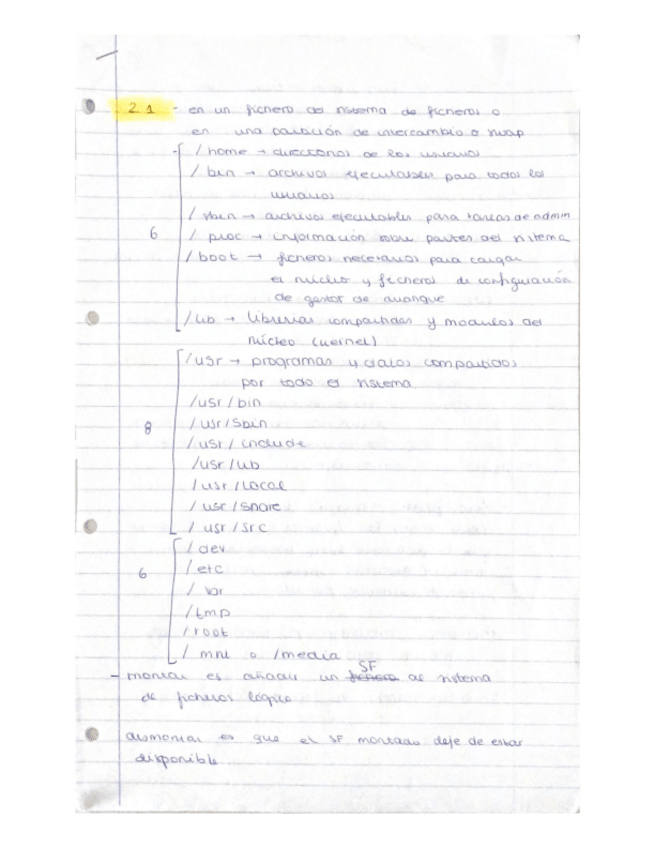 2.1 - en un fichero del sistema de ficheros o
en una partición de intercambio o swap
- /home → directorios de los usuarios
/bin → archivos ejecutables para todos los
usuarios
/sbin → archivos ejecutables para tareas de admin
6 /proc → información sobre partes del sistema
/boot → ficheros necesarios para cargar
el núcleo y ficheros de configuración
de gestor de arranque
/lib → librerias compartidas y modulos del
núcleo (kernel)
/usr → programas y datos compartidos
por todo el sistema
/usr/bin
8 /usr/sbin
/usr/include
/usr/lib
/usr/local
/usr/share
/usr/src
/dev
6 /etc
/var
/tmp
/root
/mnt o /media
- montar es añadir un fichero SF al sistema
de ficheros lógico
desmontar es que el SF montado deje de estar
disponible